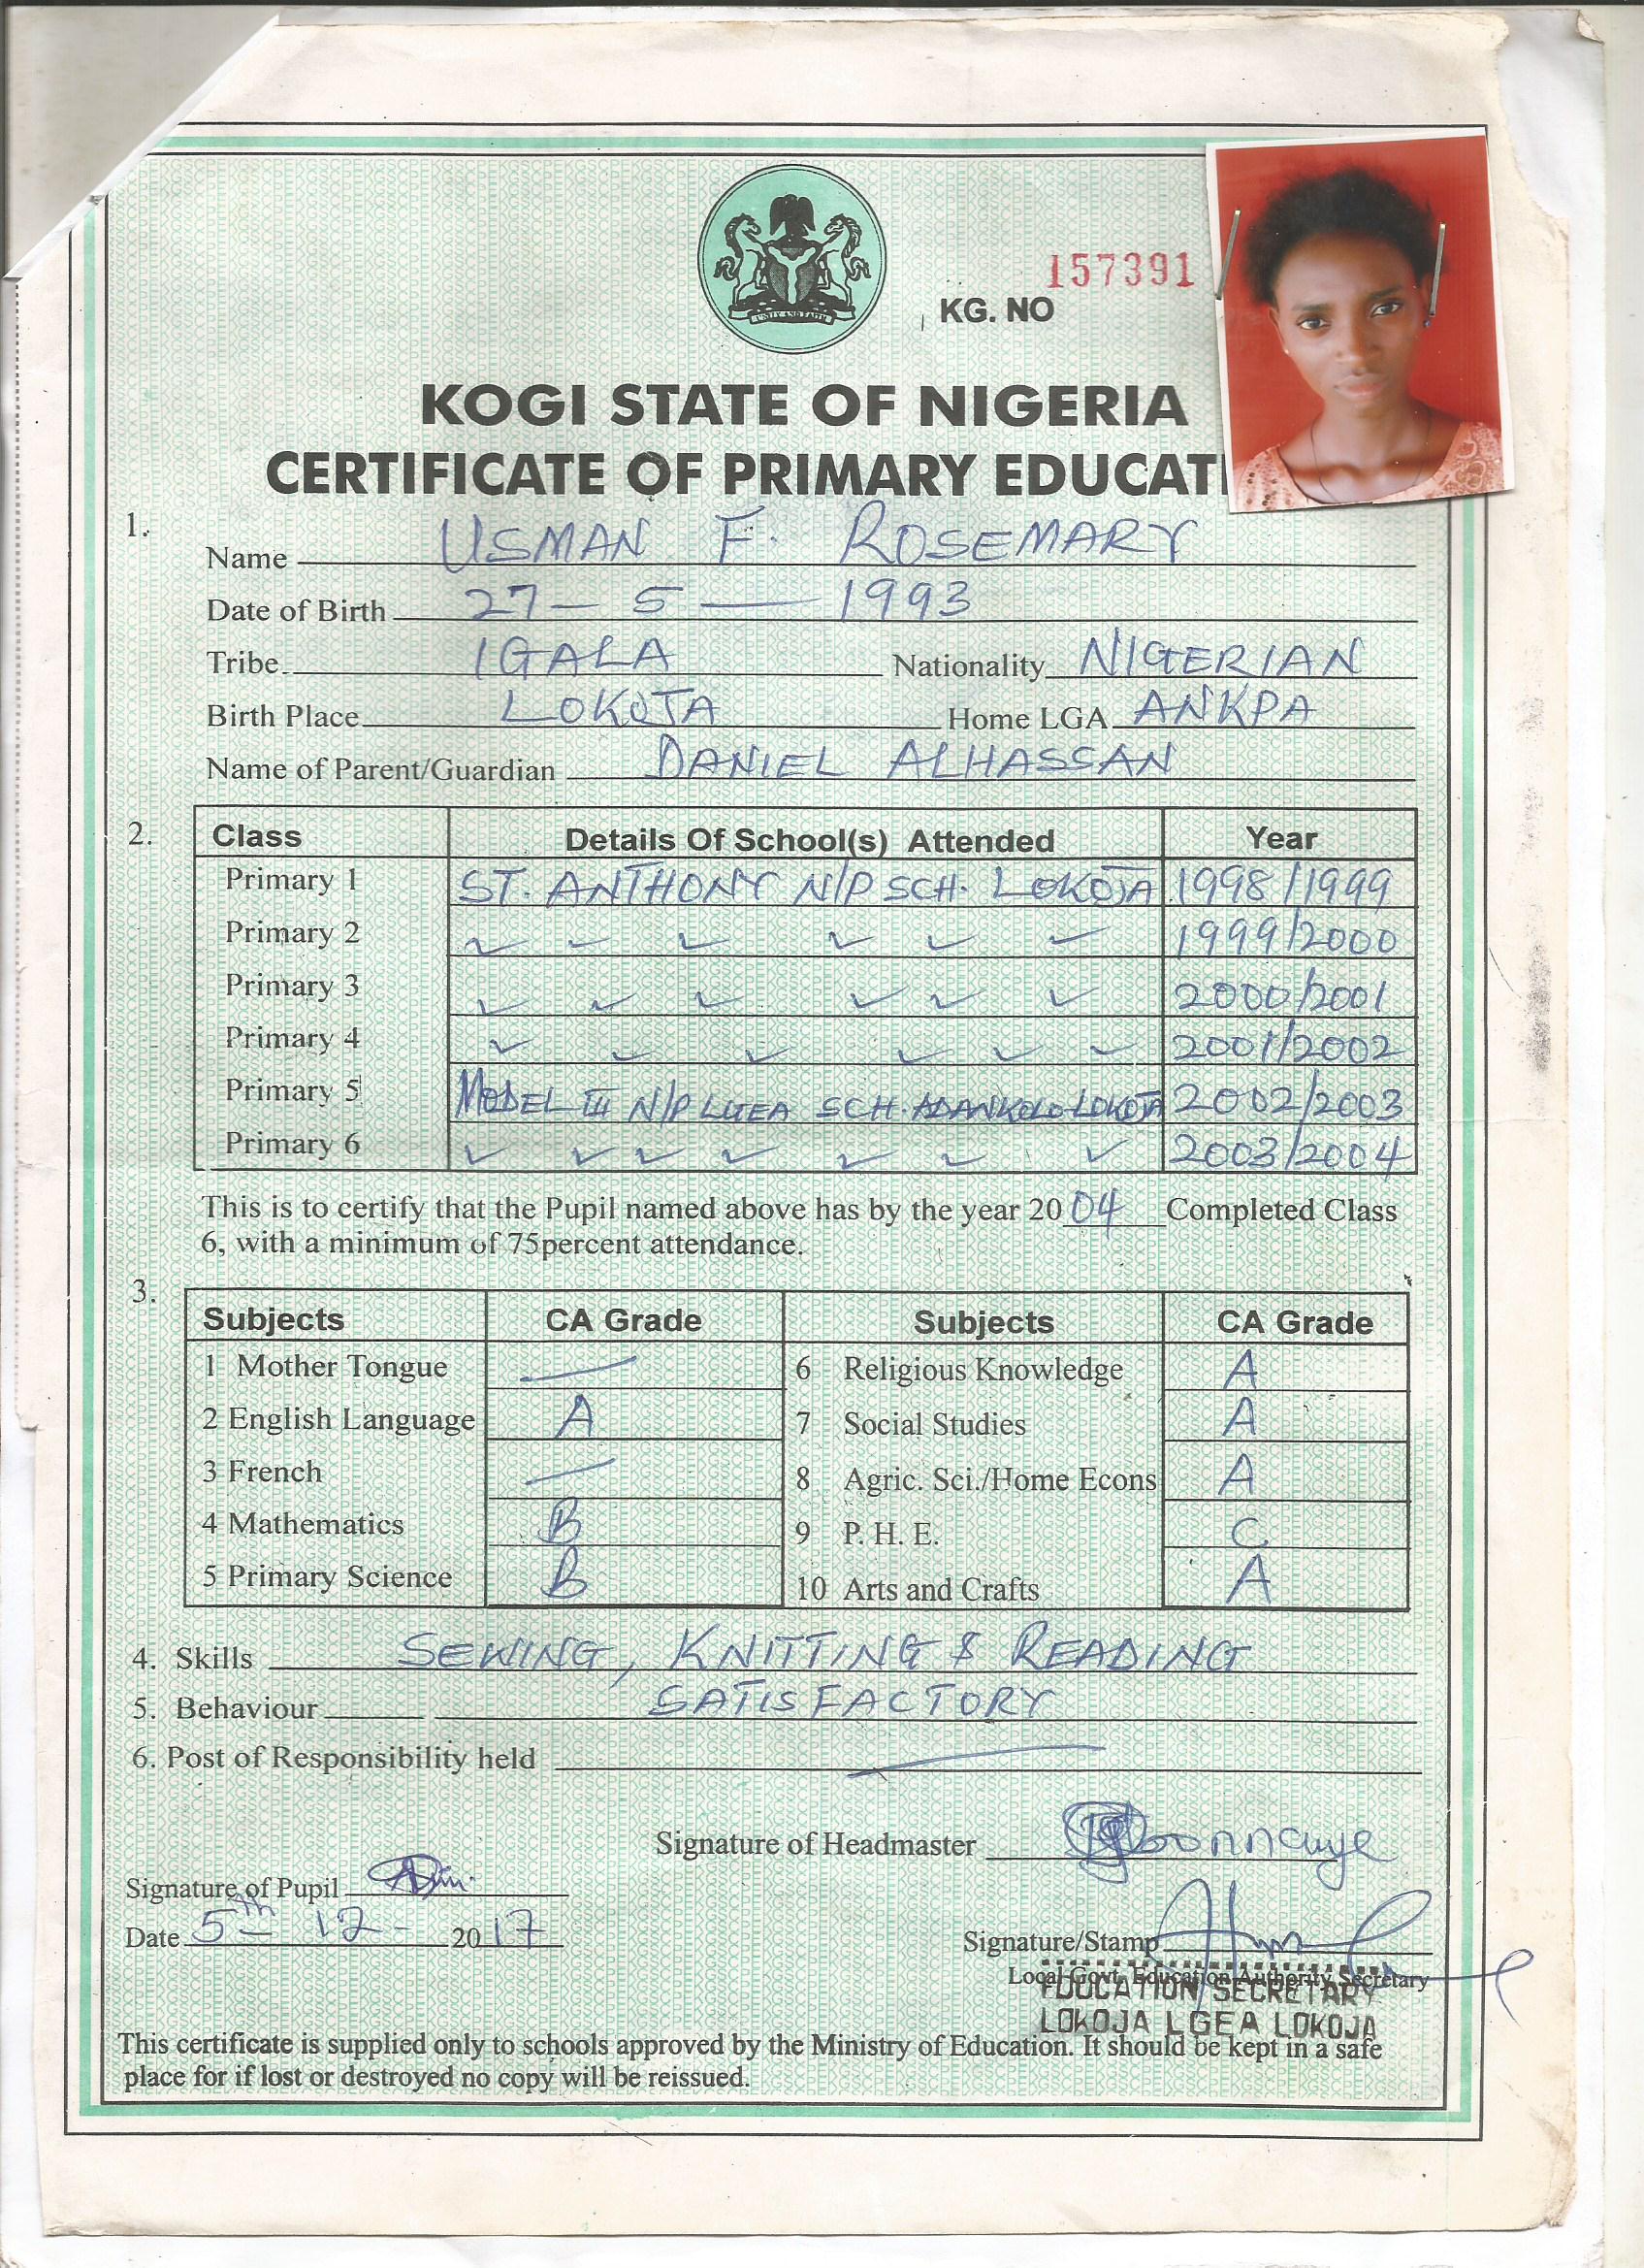 UNITY AND FAITH
157391
KG. NO
KOGI STATE OF NIGERIA
CERTIFICATE OF PRIMARY EDUCATI
1.
Name USMAN F. ROSEMARY
Date of Birth 27 – 5 – 1993
Tribe IGALA Nationality NIGERIAN
Birth Place LOKOJA Home LGA ANKPA
Name of Parent/Guardian DANIEL ALHASSAN
2. Class Details Of School(s) Attended Year
Primary 1 ST. ANTHONY N/P SCH. LOKOJA 1998/1999
Primary 2 1999/2000
Primary 3 2000/2001
Primary 4 2001/2002
Primary 5 MODEL III N/P LGEA SCH. ADANKOLO LOKOJA 2002/2003
Primary 6 2003/2004
This is to certify that the Pupil named above has by the year 20 04 Completed Class
6, with a minimum of 75percent attendance.
3. Subjects CA Grade Subjects CA Grade
1 Mother Tongue — 6 Religious Knowledge A
2 English Language A 7 Social Studies A
3 French — 8 Agric. Sci./Home Econs A
4 Mathematics B 9 P. H. E. C
5 Primary Science B 10 Arts and Crafts A
4. Skills SEWING, KNITTING & READING
5. Behaviour SATISFACTORY
6. Post of Responsibility held —
Signature of Headmaster
Signature of Pupil
Date 5th 12 - 2017
Signature/Stamp
Local Govt. Education Authority Secretary
EDUCATION SECRETARY
LOKOJA LGEA LOKOJA
This certificate is supplied only to schools approved by the Ministry of Education. It should be kept in a safe
place for if lost or destroyed no copy will be reissued.